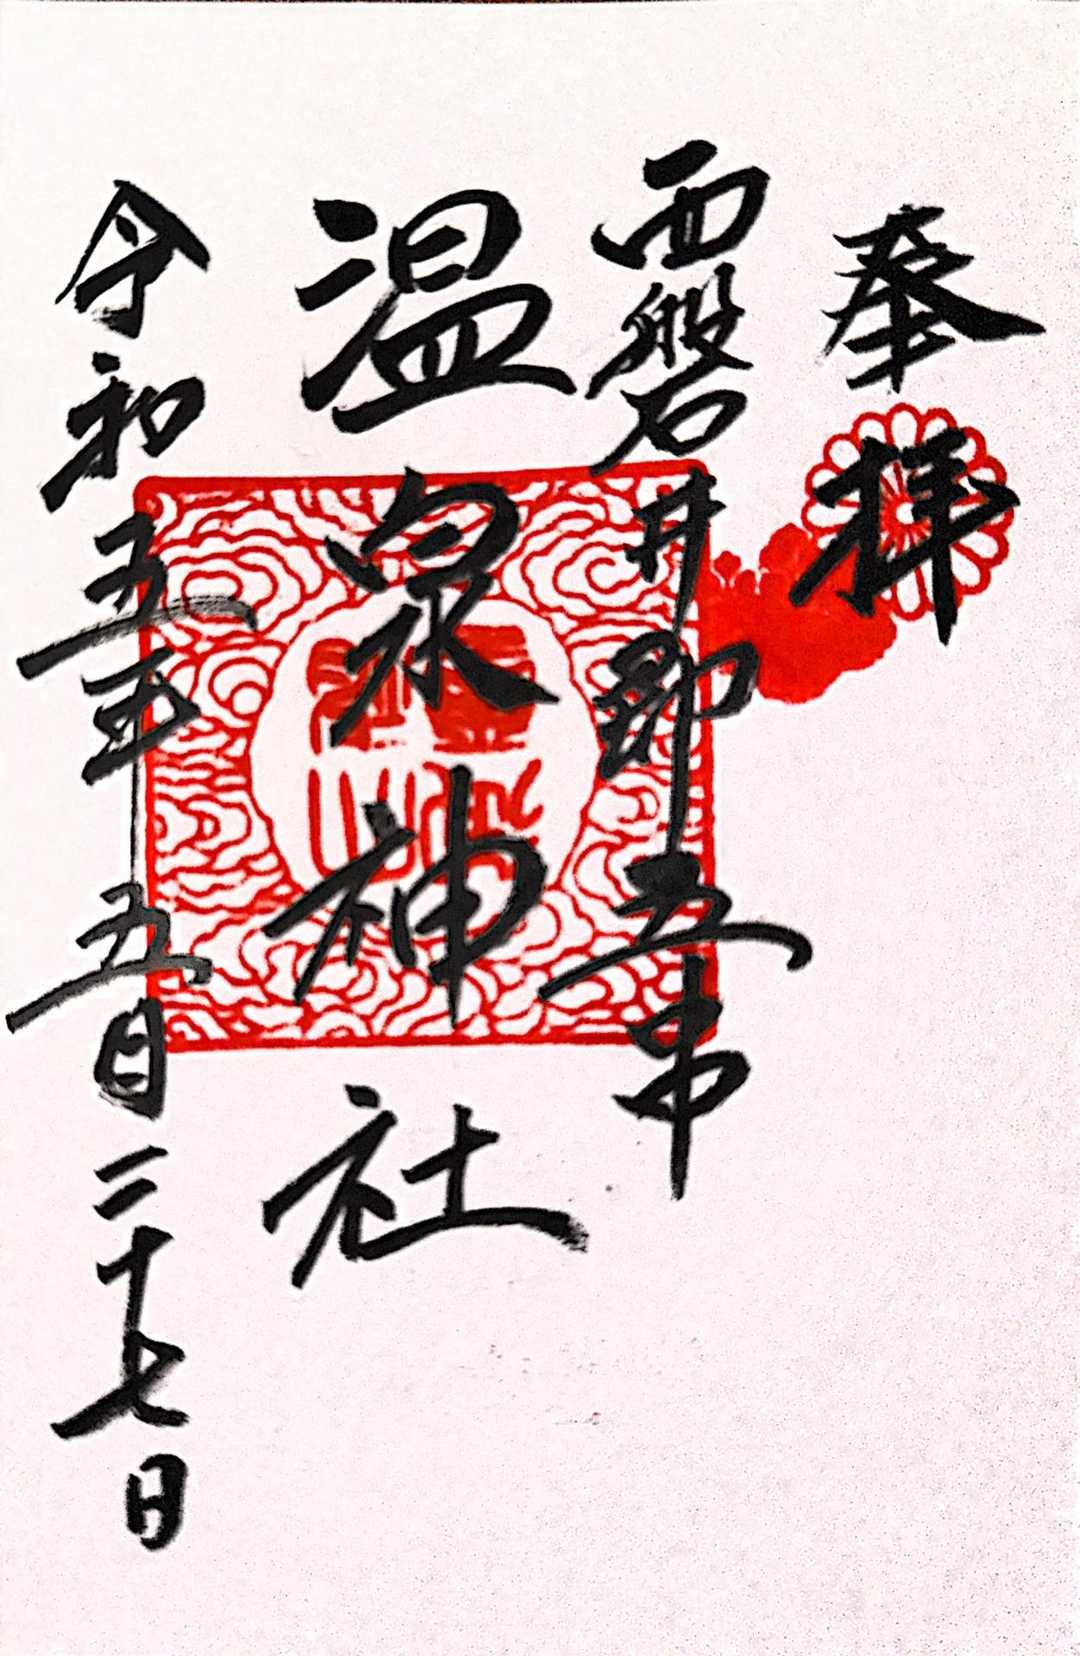 奉拝
西磐井郡五串
温泉神社
令和五年五月二十七日